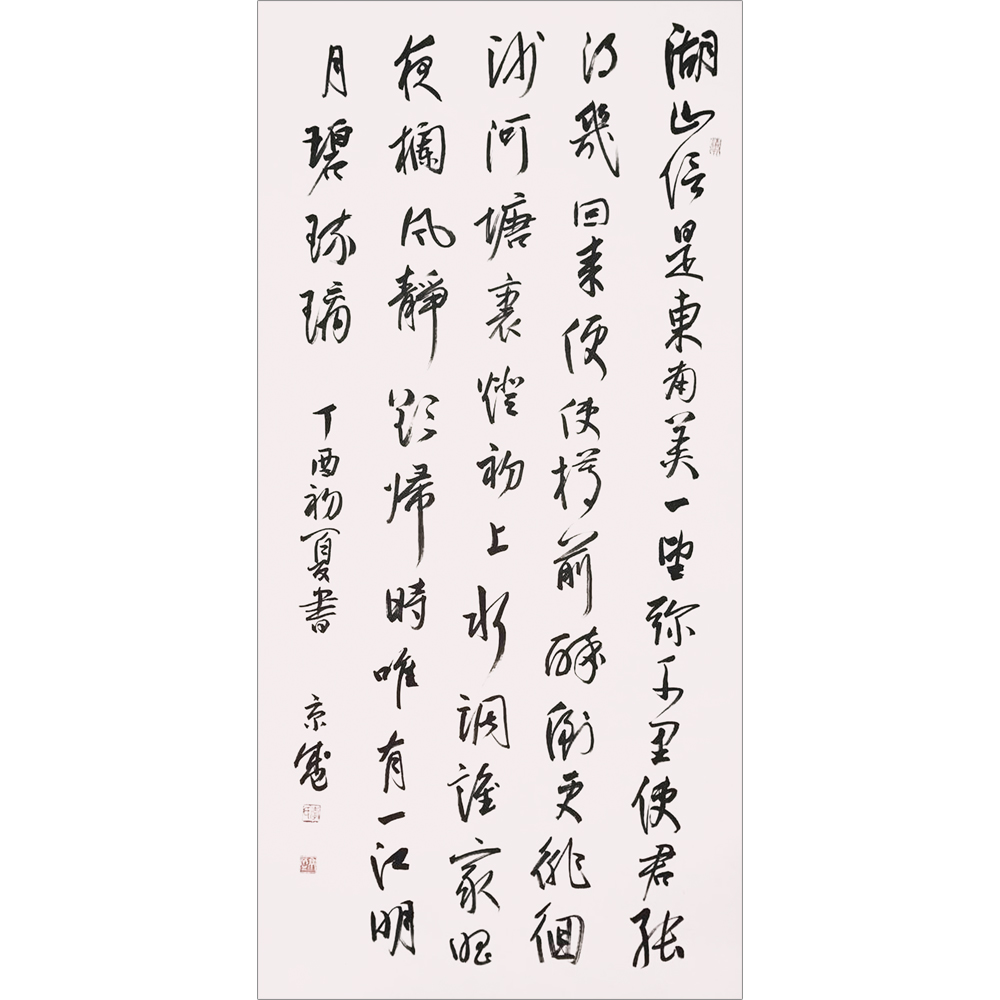 湖山信是東南美一望弥千里使君能
得幾回来便使樽前醉倒更徘徊
沙河塘裏燈初上水調誰家唱
夜欄風靜欲歸時唯有一江明
月碧琉璃 丁酉初夏書 京